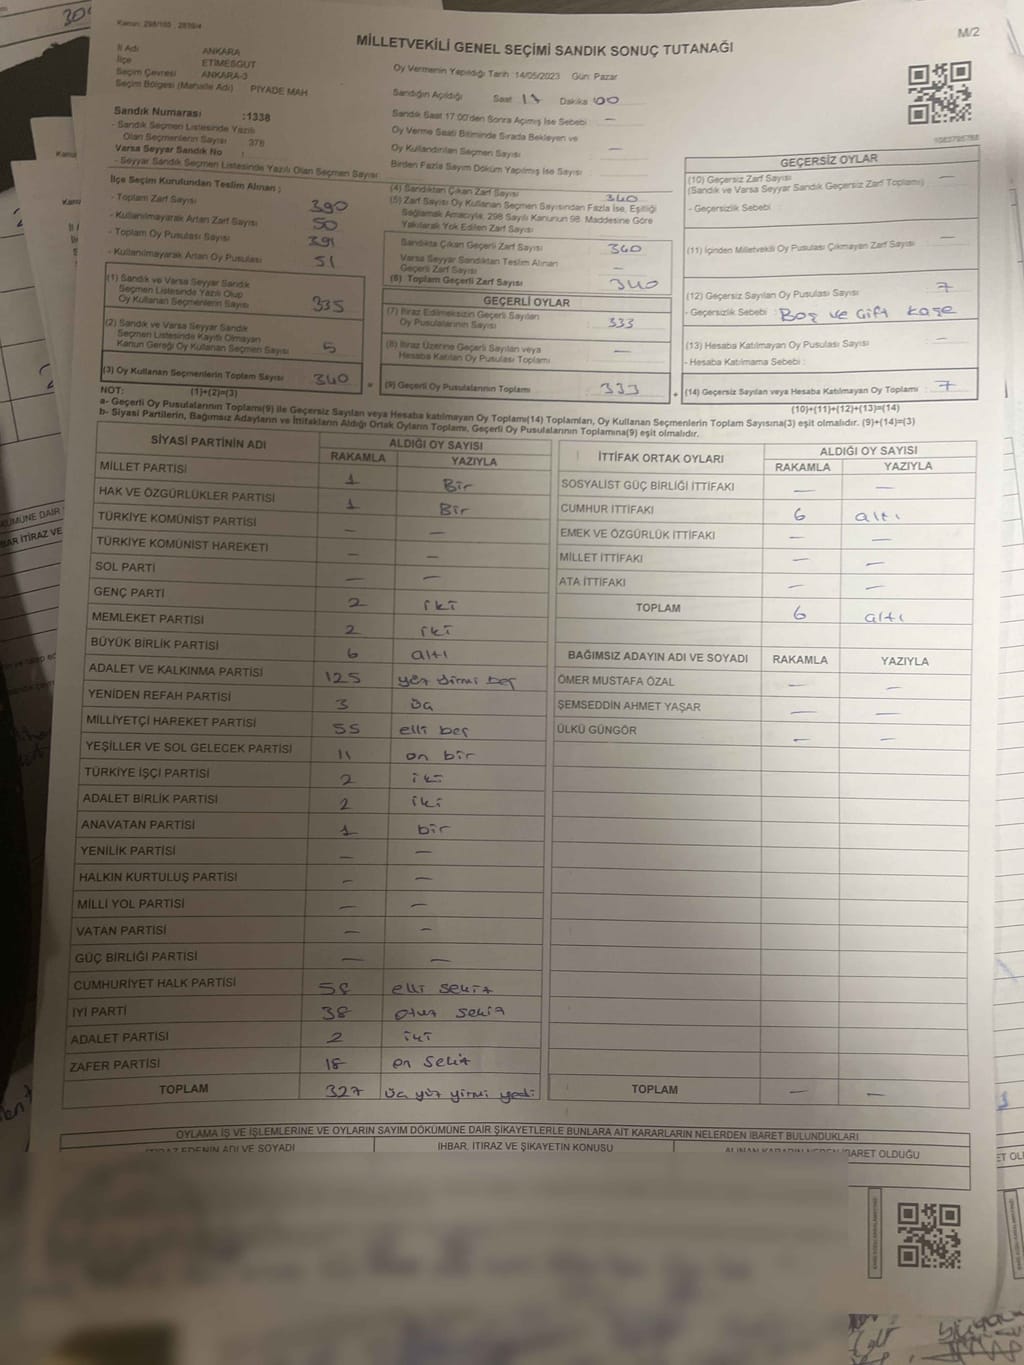 Kanun: 298/105 , 2839/4
M/2
MİLLETVEKİLİ GENEL SEÇİMİ SANDIK SONUÇ TUTANAĞI
İl Adı ANKARA
İlçe ETİMESGUT
Seçim Çevresi ANKARA-3
Seçim Bölgesi (Mahalle Adı) PİYADE MAH
Oy Vermenin Yapıldığı Tarih :14/05/2023 Gün: Pazar
Sandığın Açıldığı Saat 17 Dakika 00
Sandık Saat 17:00'den Sonra Açımış İse Sebebi : —
Oy Verme Saati Bitiminde Sırada Bekleyen ve
Oy Kullandırılan Seçmen Sayısı —
Birden Fazla Sayım Döküm Yapılmış İse Sayısı :
Sandık Numarası :1338
- Sandık Seçmen Listesinde Yazılı
Olan Seçmenlerin Sayısı : 378
Varsa Seyyar Sandık No :
- Seyyar Sandık Seçmen Listesinde Yazılı Olan Seçmen Sayısı :
İlçe Seçim Kurulundan Teslim Alınan ;
- Toplam Zarf Sayısı 390
- Kullanılmayarak Artan Zarf Sayısı 50
- Toplam Oy Pusulası Sayısı 391
- Kullanılmayarak Artan Oy Pusulası 51
(1) Sandık ve Varsa Seyyar Sandık
Seçmen Listesinde Yazılı Olup
Oy Kullanan Seçmenlerin Sayısı 335
(2) Sandık ve Varsa Seyyar Sandık
Seçmen Listesinde Kayıtlı Olmayan
Kanun Gereği Oy Kullanan Seçmen Sayısı 5
(3) Oy Kullanan Seçmenlerin Toplam Sayısı 340
(4) Sandıktan Çıkan Zarf Sayısı 340
(5) Zarf Sayısı Oy Kullanan Seçmen Sayısından Fazla İse, Eşitliği
Sağlamak Amacıyla, 298 Sayılı Kanunun 98. Maddesine Göre
Yakılarak Yok Edilen Zarf Sayısı
Sandıkta Çıkan Geçerli Zarf Sayısı 340
Varsa Seyyar Sandıktan Teslim Alınan
Geçerli Zarf Sayısı —
(6) Toplam Geçerli Zarf Sayısı 340
GEÇERLİ OYLAR
(7) İtiraz Edilmeksizin Geçerli Sayılan
Oy Pusulalarının Sayısı 333
(8) İtiraz Üzerine Geçerli Sayılan veya
Hesaba Katılan Oy Pusulası Toplamı —
= (9) Geçerli Oy Pusulalarının Toplamı 333
GEÇERSİZ OYLAR
(10) Geçersiz Zarf Sayısı —
(Sandık ve Varsa Seyyar Sandık Geçersiz Zarf Toplamı)
- Geçersizlik Sebebi :
(11) İçinden Milletvekili Oy Pusulası Çıkmayan Zarf Sayısı —
(12) Geçersiz Sayılan Oy Pusulası Sayısı 7
- Geçersizlik Sebebi : Boş ve Çift Kaşe
(13) Hesaba Katılmayan Oy Pusulası Sayısı —
- Hesaba Katılmama Sebebi :
+ (14) Geçersiz Sayılan veya Hesaba Katılmayan Oy Toplamı : 7
NOT: (1)+(2)=(3)
(10)+(11)+(12)+(13)=(14)
a- Geçerli Oy Pusulalarının Toplamı(9) ile Geçersiz Sayılan veya Hesaba katılmayan Oy Toplamı(14) Toplamları, Oy Kullanan Seçmenlerin Toplam Sayısına(3) eşit olmalıdır. (9)+(14)=(3)
b- Siyasi Partilerin, Bağımsız Adayların ve İttifakların Aldığı Ortak Oyların Toplamı, Geçerli Oy Pusulalarının Toplamına(9) eşit olmalıdır.
SİYASİ PARTİNİN ADI ALDIĞI OY SAYISI
RAKAMLA YAZIYLA
MİLLET PARTİSİ 1 Bir
HAK VE ÖZGÜRLÜKLER PARTİSİ 1 Bir
TÜRKİYE KOMÜNİST PARTİSİ — —
TÜRKİYE KOMÜNİST HAREKETİ — —
SOL PARTİ — —
GENÇ PARTİ 2 iki
MEMLEKET PARTİSİ 2 iki
BÜYÜK BİRLİK PARTİSİ 6 altı
ADALET VE KALKINMA PARTİSİ 125 yüz yirmi beş
YENİDEN REFAH PARTİSİ 3 üç
MİLLİYETÇİ HAREKET PARTİSİ 55 elli beş
YEŞİLLER VE SOL GELECEK PARTİSİ 11 on bir
TÜRKİYE İŞÇİ PARTİSİ 2 iki
ADALET BİRLİK PARTİSİ 2 iki
ANAVATAN PARTİSİ 1 bir
YENİLİK PARTİSİ — —
HALKIN KURTULUŞ PARTİSİ — —
MİLLİ YOL PARTİSİ — —
VATAN PARTİSİ — —
GÜÇ BİRLİĞİ PARTİSİ — —
CUMHURİYET HALK PARTİSİ 58 elli sekiz
İYİ PARTİ 38 otuz sekiz
ADALET PARTİSİ 2 iki
ZAFER PARTİSİ 18 on sekiz
TOPLAM 327 üç yüz yirmi yedi
İTTİFAK ORTAK OYLARI ALDIĞI OY SAYISI
RAKAMLA YAZIYLA
SOSYALİST GÜÇ BİRLİĞİ İTTİFAKI — —
CUMHUR İTTİFAKI 6 altı
EMEK VE ÖZGÜRLÜK İTTİFAKI — —
MİLLET İTTİFAKI — —
ATA İTTİFAKI — —
TOPLAM 6 altı
BAĞIMSIZ ADAYIN ADI VE SOYADI RAKAMLA YAZIYLA
ÖMER MUSTAFA ÖZAL — —
ŞEMSEDDİN AHMET YAŞAR — —
ÜLKÜ GÜNGÖR — —
TOPLAM — —
OYLAMA İŞ VE İŞLEMLERİNE VE OYLARIN SAYIM DÖKÜMÜNE DAİR ŞİKAYETLERLE BUNLARA AİT KARARLARIN NELERDEN İBARET BULUNDUKLARI
EDENİN ADI VE SOYADI İHBAR, İTİRAZ VE ŞİKAYETİN KONUSU İBARET OLDUĞU